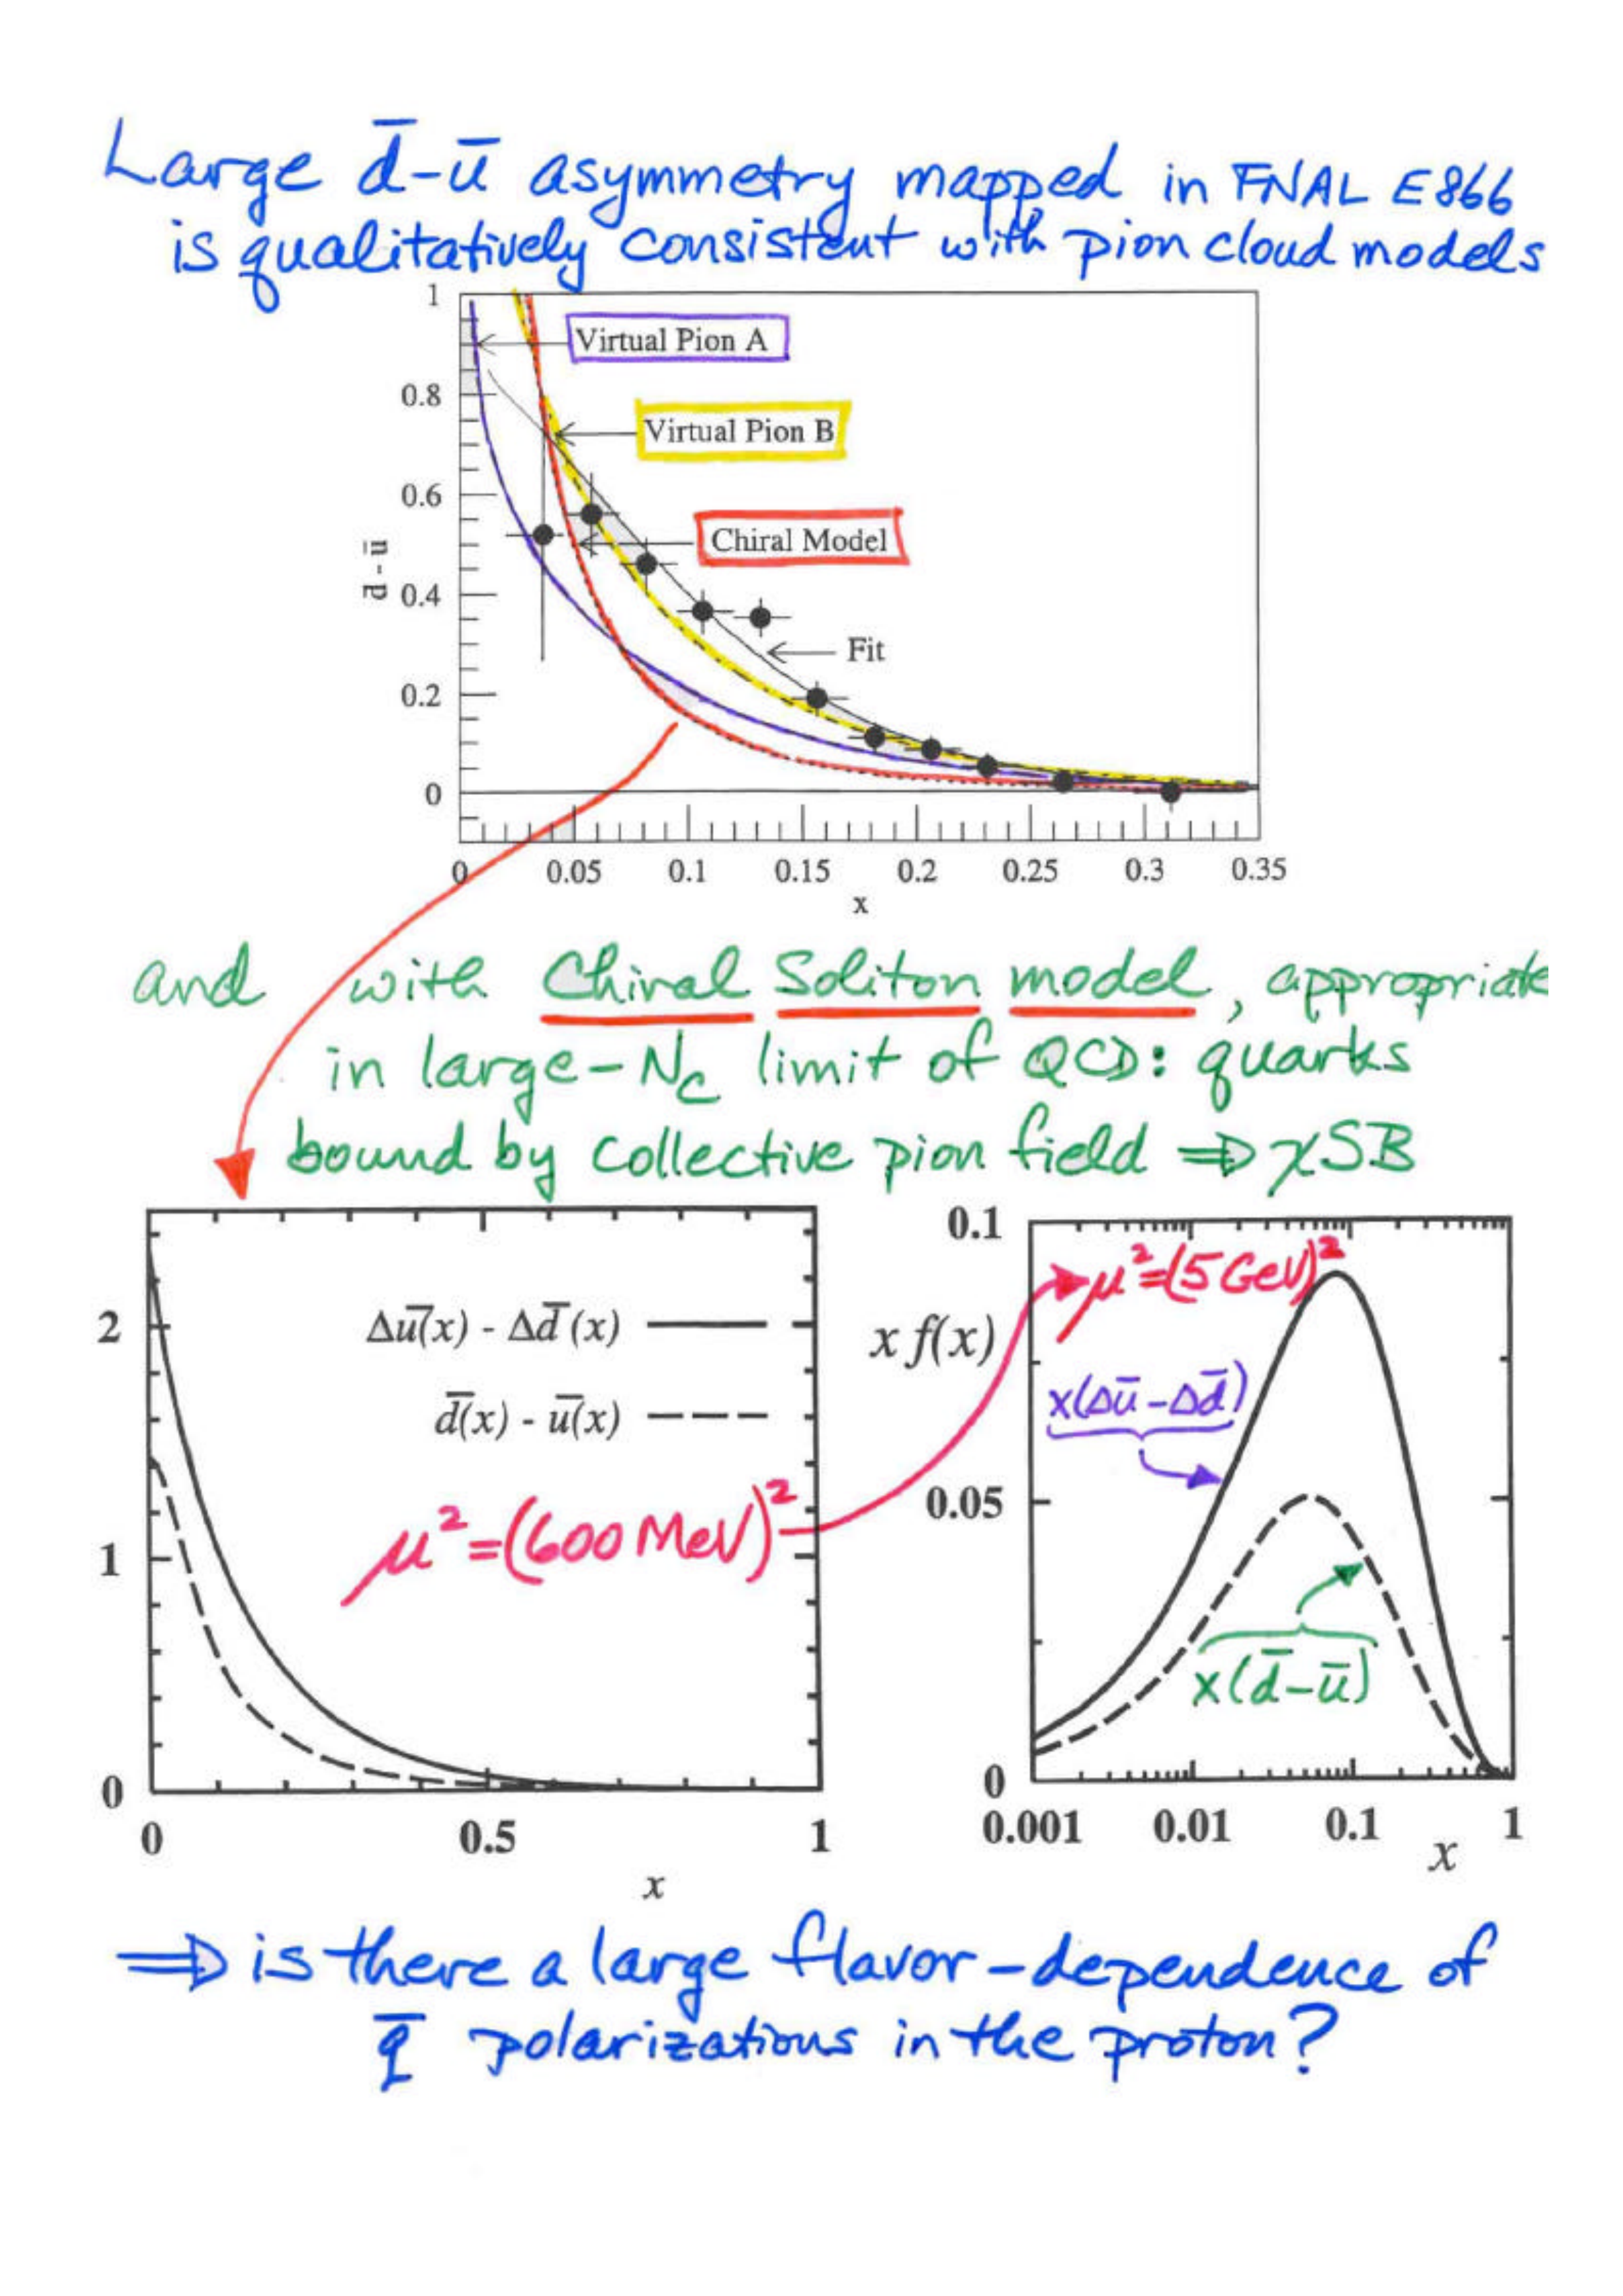 Large d̄-ū asymmetry mapped in FNAL E866
is qualitatively consistent with pion cloud models
1
0.8
0.6
0.4
0.2
0
d̄ - ū
Virtual Pion A
Virtual Pion B
Chiral Model
Fit
0 0.05 0.1 0.15 0.2 0.25 0.3 0.35
x
and with Chiral Soliton model, appropriate
in large-Nc limit of QCD: quarks
bound by collective pion field ⇒ χSB
2
1
0
Δū(x) - Δd̄(x)
d̄(x) - ū(x)
μ²=(600 MeV)²
0 0.5 1
x
0.1
0.05
0
x f(x)
μ²=(5 GeV)²
x(Δū-Δd̄)
x(d̄-ū)
0.001 0.01 0.1 1
x
⇒ is there a large flavor-dependence of
q̄ polarizations in the proton?